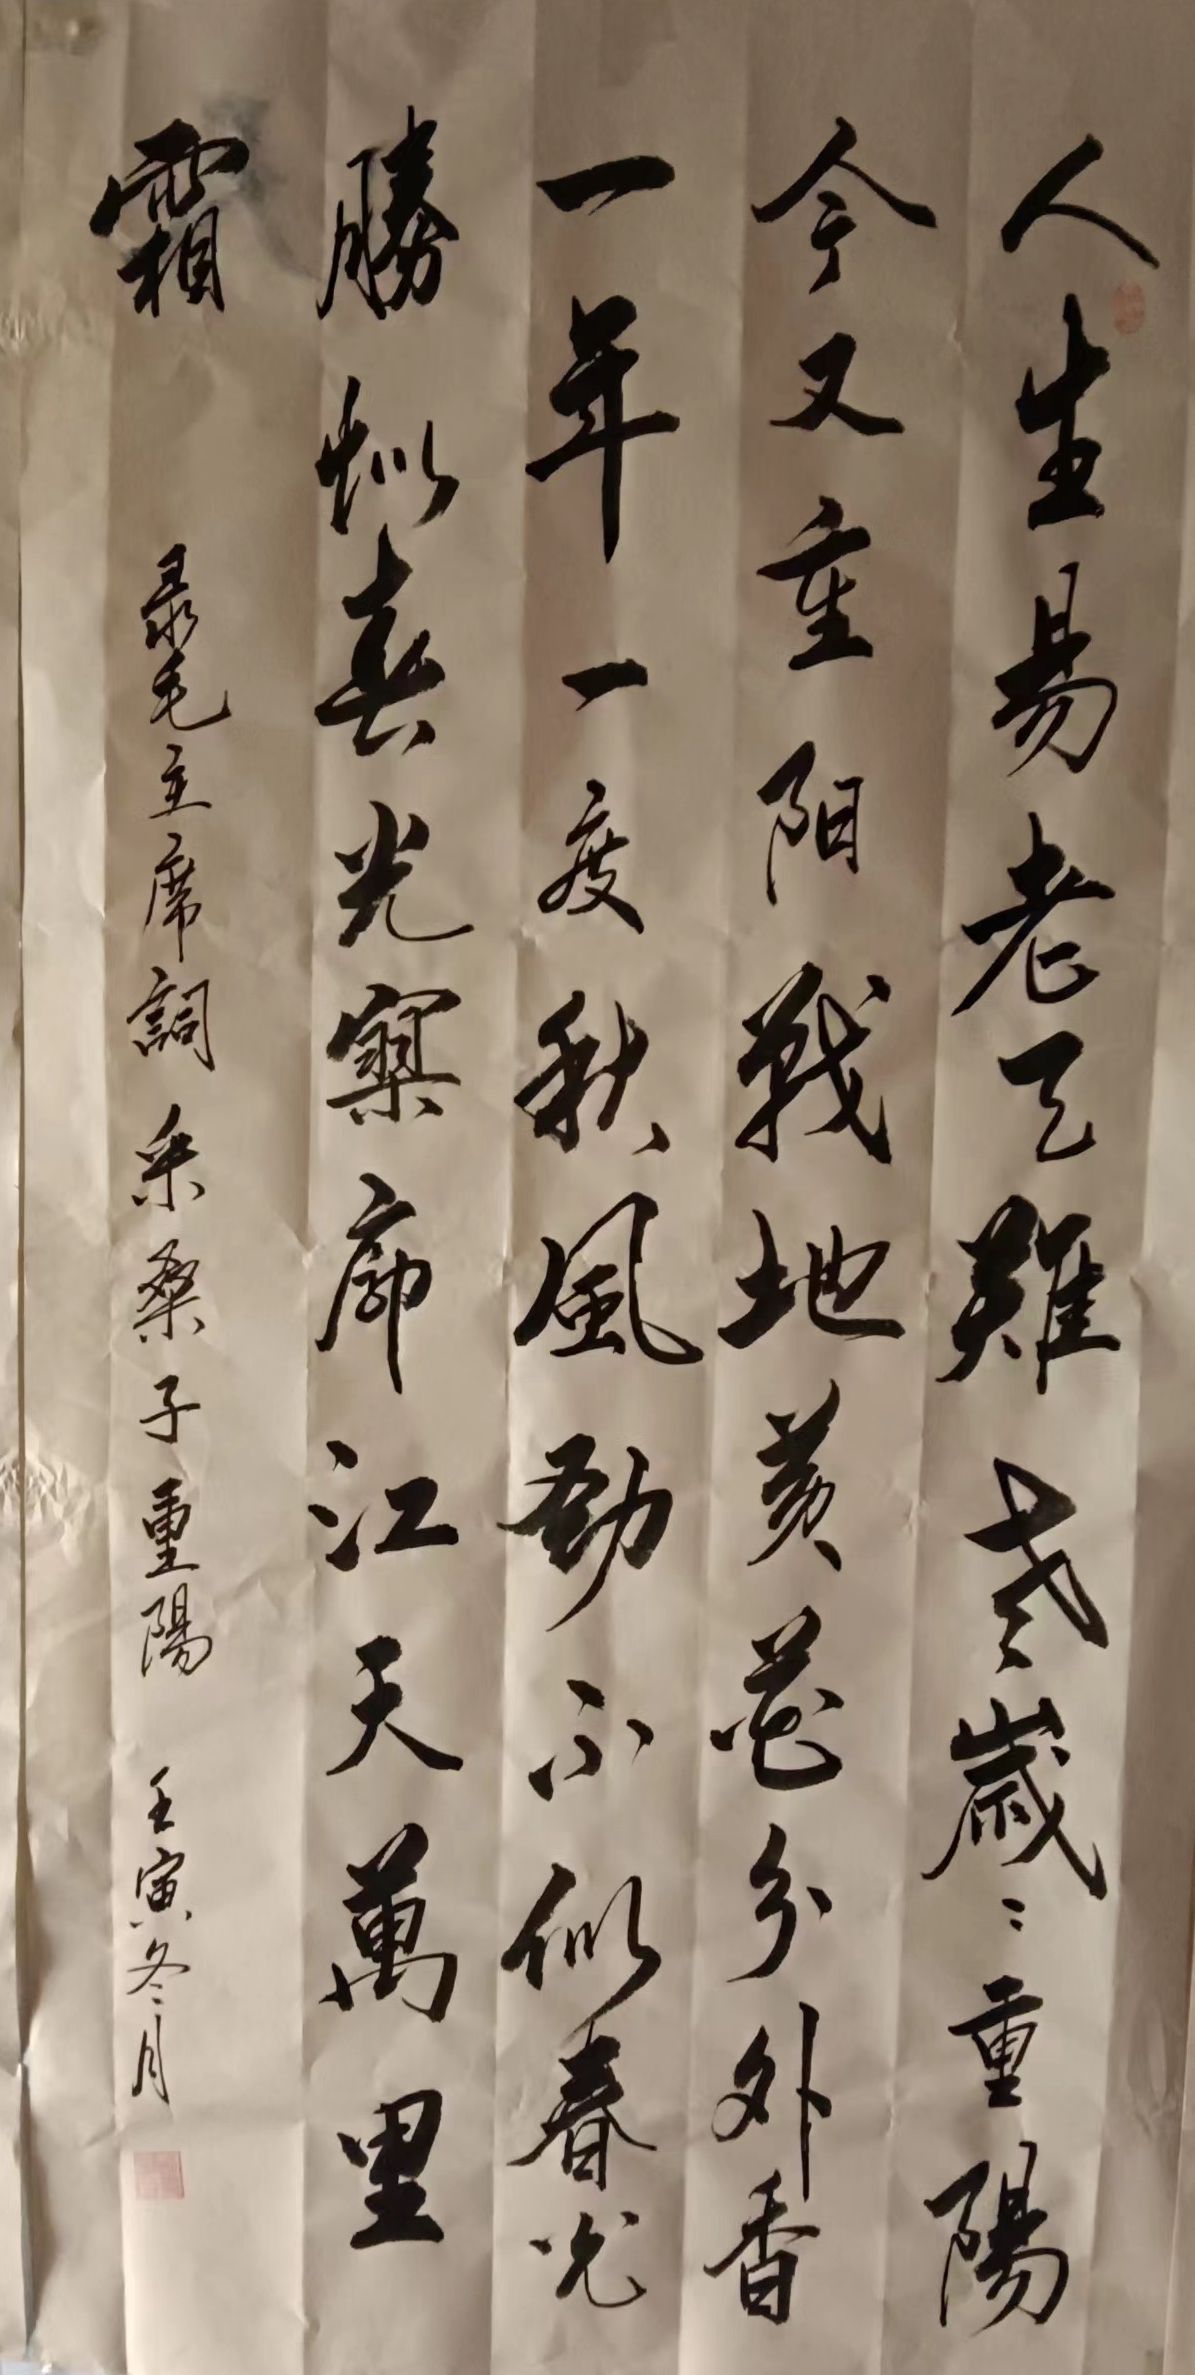 人生易老天難老歲々重陽
今又重阳戰地黄花分外香
一年一度秋風勁不似春光
勝似春光寥廓江天萬里
霜
录毛主席詞采桑子重陽 壬寅冬月